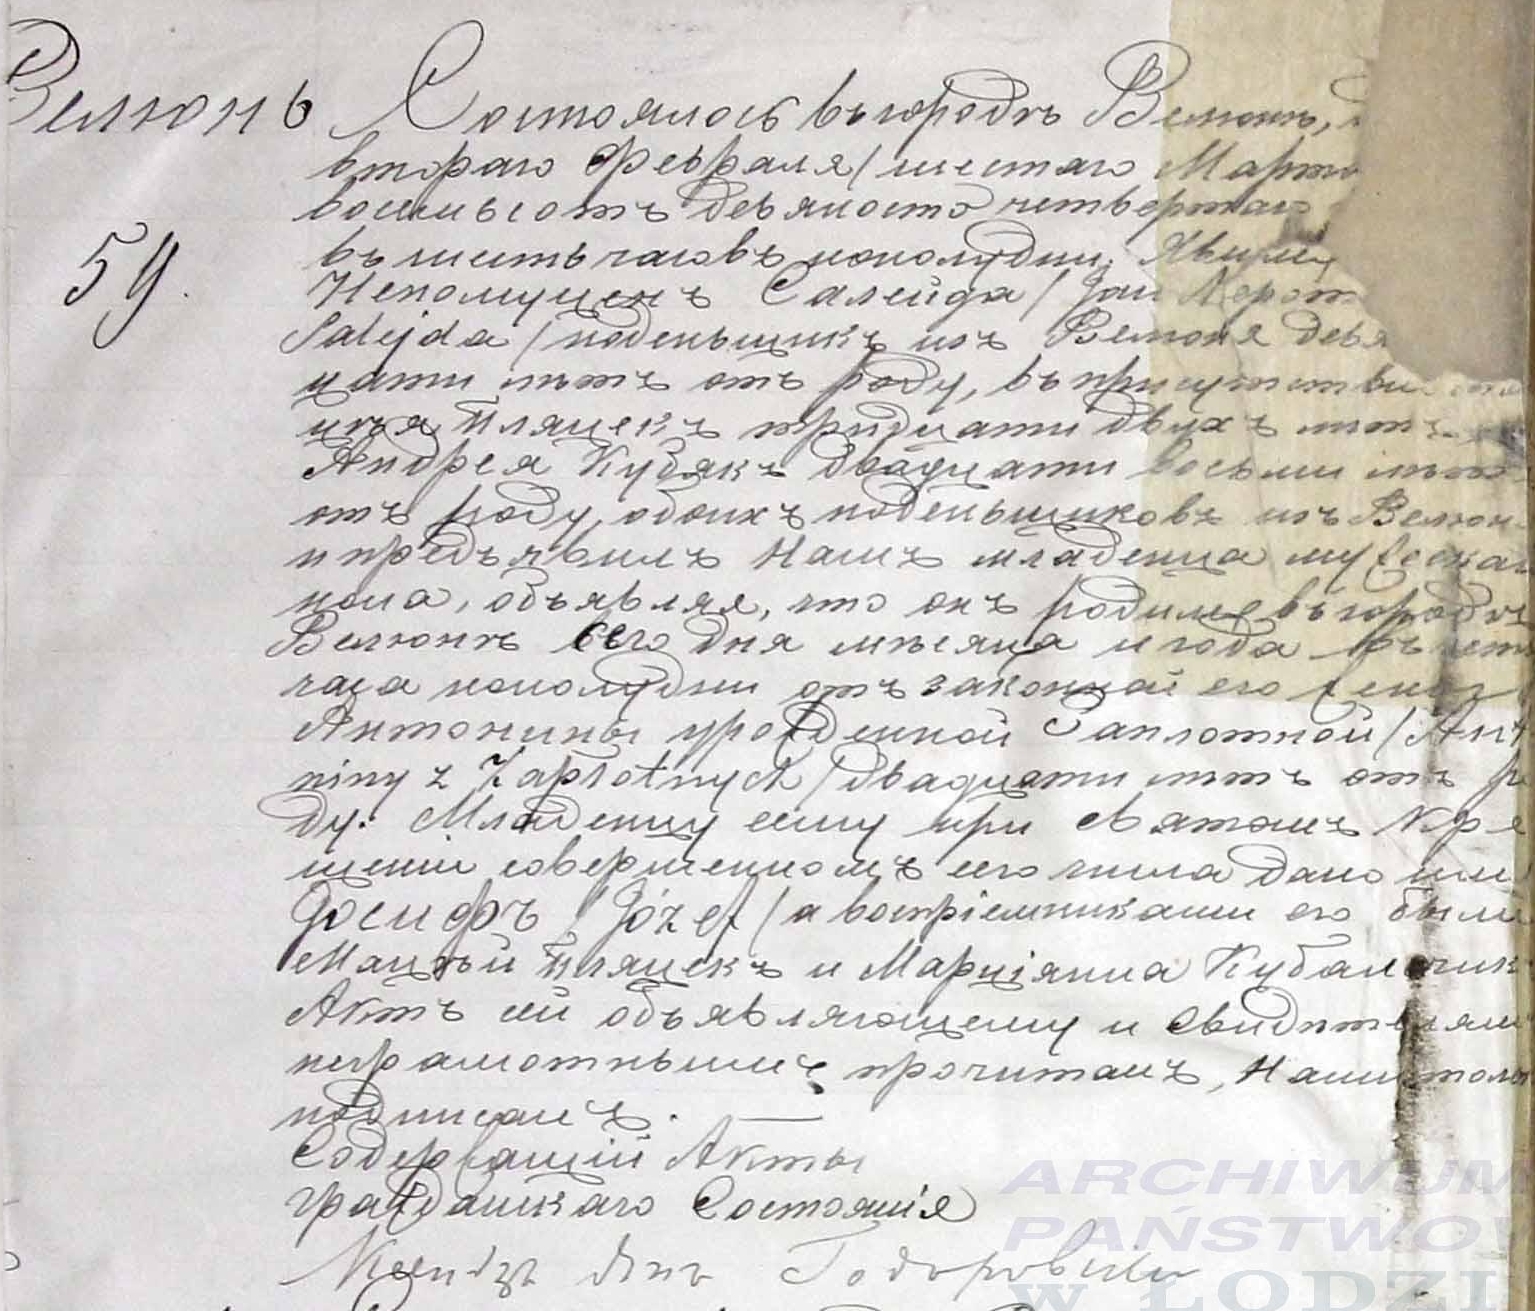 Велюнь Состоялось въ городѣ Велюнѣ,
втораго Февраля / шестаго Марта
восемьсотъ девяносто четвертаго
59. въ шесть часовъ пополудни. Явился
Непомуценъ Салейда / Jan Nepom
Salejda / поденьщикъ изъ Велюня девя
цати лѣтъ отъ роду, въ присутствіи
цѣя Пляцекъ тридцати двухъ лѣтъ
Андрея Кубякъ двадцати восьми лѣтъ
отъ роду, обоихъ поденьщиковъ изъ Велюн
и предъявилъ Намъ младенца мужескаго
пола, объявляя, что онъ родился въ городѣ
Велюнѣ сего дня мѣсяца и года въ
часа пополудни отъ законной его жены
Антонины урожденной Заплотной / Anto
niny z Zapłotnych / двадцати лѣтъ отъ ро
ду. Младенцу сему при Святомъ Кре
щеніи совершенномъ сего числа дано имя
Іосифъ / Józef / а воспріемниками его были
Мацѣй Пляцекъ и Марціянна
Актъ сей объявляющему и свидѣтелямъ
неграмотнымъ прочитанъ, Нами только
подписанъ. —
Содержащій Акты
Гражданскаго Состоянія
Ксендзъ Янъ
ARCHIWUM
PAŃSTWO
W ŁODZI